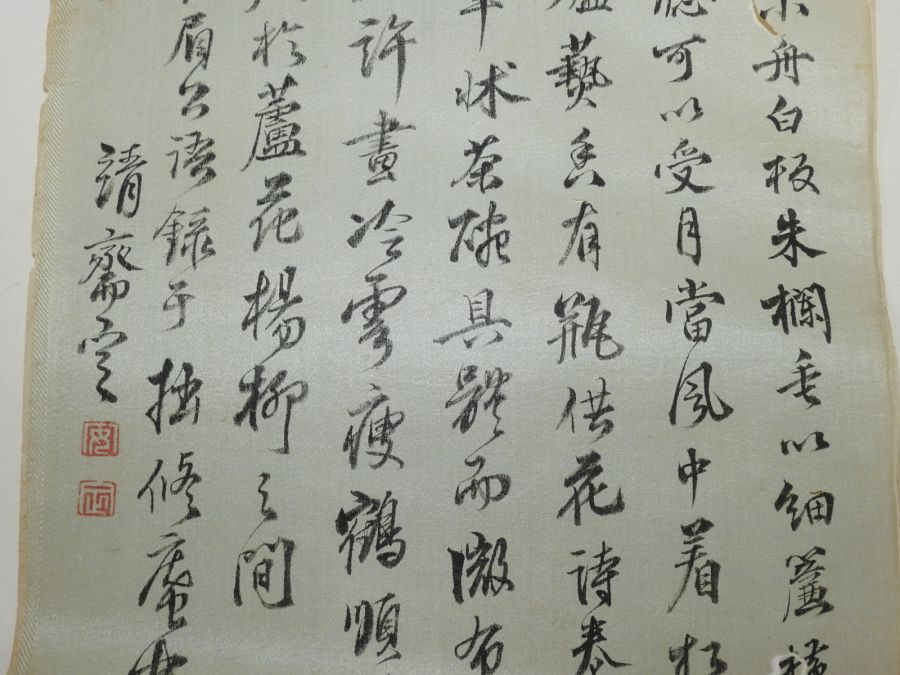 舟白板朱欄垂以細簾
可以受月當風中着
爇香有瓶供花詩卷
牀茶碗具體而微
許畫冷雲瘦鶴順
於蘆花楊柳之間
眉公語錄于拙修庵
靖齋